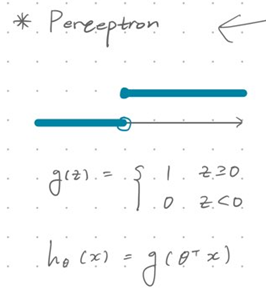 * Perceptron
g(z) = { 1 z≥0
0 z<0
hθ(x) = g(θᵀx)